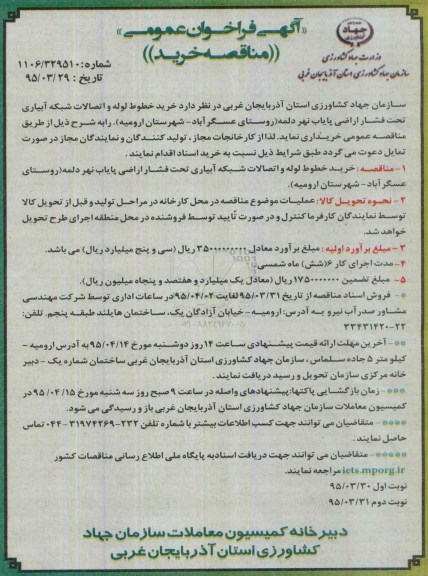 جهاد
وزارت جهاد کشاورزی
سازمان جهاد کشاورزی استان آذربایجان غربی
«آگهی فراخوان عمومی»
((مناقصه خرید))
شماره: ۱۱۰۶/۳۲۹۵۱۰
تاریخ : ۹۵/۰۳/۲۹
سازمان جهاد کشاورزی استان آذربایجان غربی در نظر دارد خرید خطوط لوله و اتصالات شبکه آبیاری
تحت فشار اراضی پایاب نهر دلمه(روستای عسگر آباد-شهرستان ارومیه). را به شرح ذیل از طریق
مناقصه عمومی خریداری نماید. لذا از کارخانجات مجاز، تولید کنندگان و نمایندگان مجاز در صورت
تمایل دعوت می گردد طبق شرایط ذیل نسبت به خرید اسناد اقدام نمایند.
۱-مناقصه : خرید خطوط لوله و اتصالات شبکه آبیاری تحت فشار اراضی پایاب نهر دلمه(روستای
عسگر آباد- شهرستان ارومیه).
۲- نحوه تحویل کالا: عملیات موضوع مناقصه در محل کارخانه در مراحل تولید و قبل از تحویل کالا
توسط نمایندگان کارفرما کنترل و در صورت تأیید توسط فروشنده در محل منطقه اجرای طرح تحویل
خواهد شد.
۳- مبلغ بر آورد اولیه : مبلغ بر آورد معادل ۳۵۰۰۰۰۰۰۰۰۰ ریال (سی و پنج میلیارد ریال) می باشد.
۴-مدت اجرای کار ۶(شش) ماه شمسی.
۵- مبلغ تضمین ۱۷۵۰۰۰۰۰۰۰ ریال (معادل یک میلیارد و هفتصد و پنجاه میلیون ریال).
* فروش اسناد مناقصه از تاریخ ۹۵/۰۳/۳۱ لغایت ۹۵/۰۴/۰۲ در ساعات اداری توسط شرکت مهندسی
مشاور صدر آب نیرو به آدرس: ارومیه- خیابان آزادگان یک، ساختمان هایلند طبقه پنجم. تلفن:
۲۲-۳۳۴۳۱۴۲۰
**- آخرین مهلت ارائه قیمت پیشنهادی ساعت ۱۴ روز دوشنبه مورخ ۹۵/۰۴/۱۴ به آدرس ارومیه -
کیلو متر ۵ جاده سلماس ، سازمان جهاد کشاورزی استان آذربایجان غربی ساختمان شماره یک - دبیر
خانه مرکزی سازمان تحویل و رسید دریافت نمایند.
***- زمان بازگشایی پاکتها: پیشنهادهای واصله در ساعت ۹ صبح روز سه شنبه مورخ ۹۵/۰۴/۱۵ در
کمیسیون معاملات سازمان جهاد کشاورزی استان آذربایجان غربی باز و رسیدگی می شود.
****- متقاضیان می توانند جهت کسب اطلاعات بیشتر با شماره تلفن ۲۳۲-۳۱۹۷۴۲۶۹-۰۴۴ تماس
حاصل نمایند.
*****- متقاضیان می توانند جهت دریافت اسناد به پایگاه ملی اطلاع رسانی مناقصات کشور
iets.mporg.ir مراجعه نمایند.
نوبت اول ۹۵/۰۳/۳۰
نوبت دوم ۹۵/۰۳/۳۱
دبیر خانه کمیسیون معاملات سازمان جهاد
کشاورزی استان آذربایجان غربی